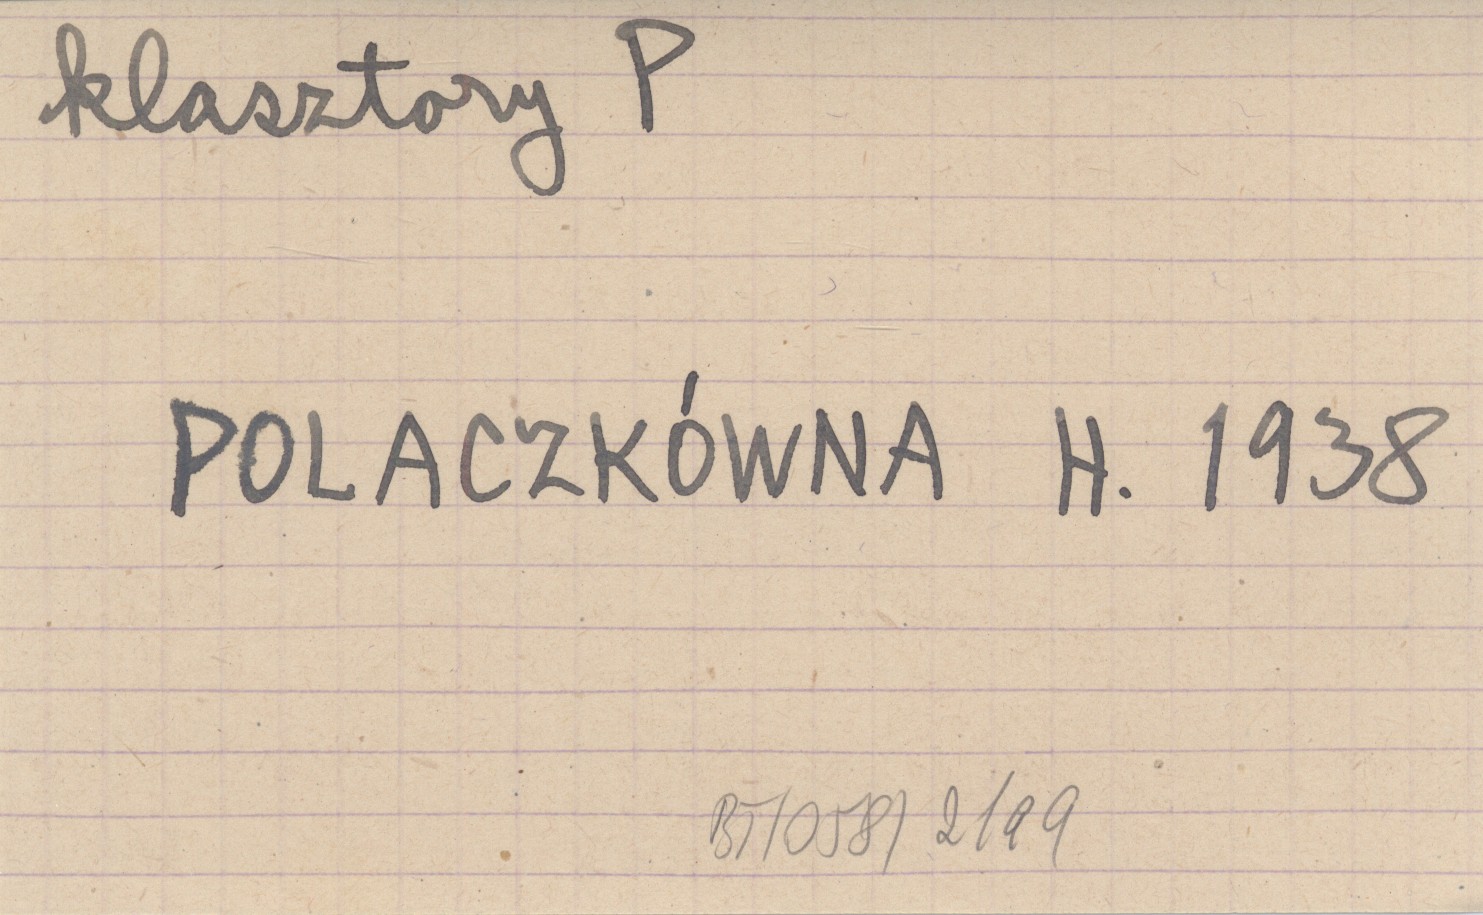 klasztory P
POLACZKÓWNA H. 1938
BT/058/2/99